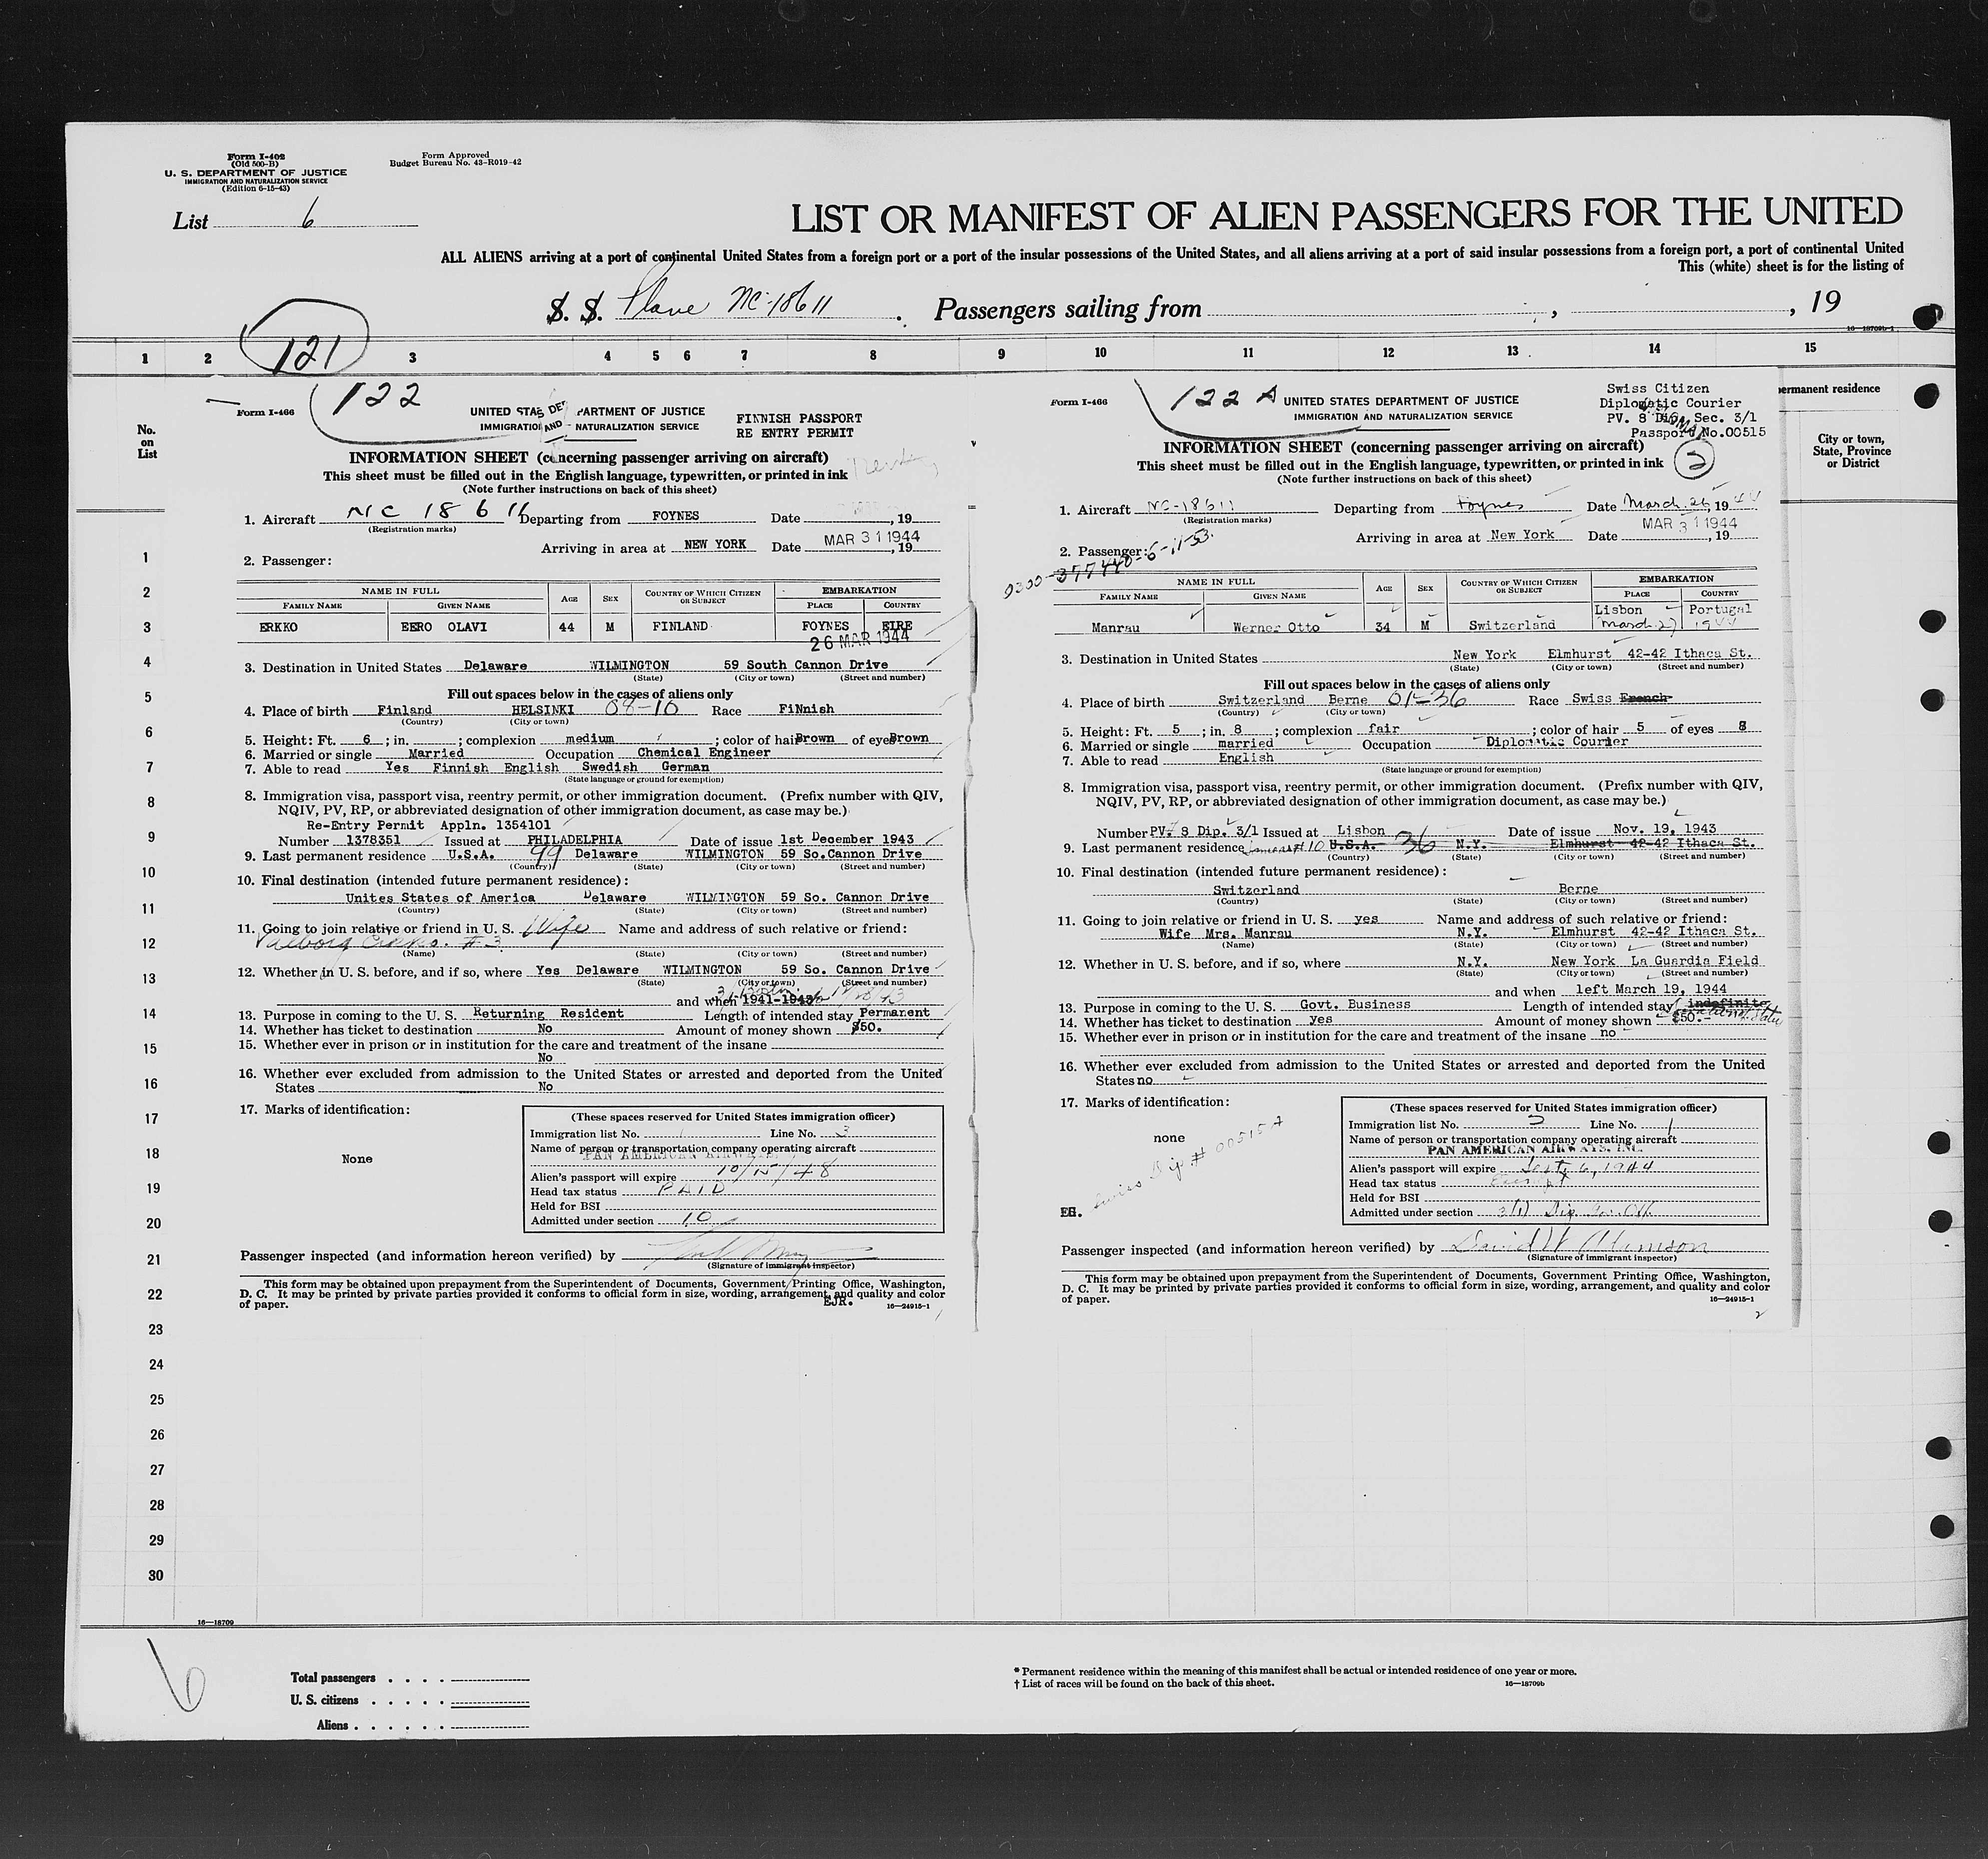 Form I-402
(Old 500-B)
U. S. DEPARTMENT OF JUSTICE
IMMIGRATION AND NATURALIZATION SERVICE
(Edition 6-15-43)
Form Approved
Budget Bureau No. 43-R019-42
List 6
LIST OR MANIFEST OF ALIEN PASSENGERS FOR THE UNITED
ALL ALIENS arriving at a port of continental United States from a foreign port or a port of the insular possessions of the United States, and all aliens arriving at a port of said insular possessions from a foreign port, a port of continental United
This (white) sheet is for the listing of
S. S. Plane NC-18611 . Passengers sailing from , , 19
16—18709b-1
121
1 2 3 4 5 6 7 8 9 10 11 12 13 14 15
No.
on
List
ermanent residence
City or town,
State, Province
or District
Form I-466
122
UNITED STATES DEPARTMENT OF JUSTICE
IMMIGRATION AND NATURALIZATION SERVICE
FINNISH PASSPORT
RE ENTRY PERMIT
INFORMATION SHEET (concerning passenger arriving on aircraft)
This sheet must be filled out in the English language, typewritten, or printed in ink
(Note further instructions on back of this sheet)
1. Aircraft NC 18611 Departing from FOYNES Date , 19
(Registration marks)
Arriving in area at NEW YORK Date MAR 31 1944 , 19
2. Passenger:
NAME IN FULL AGE SEX COUNTRY OF WHICH CITIZEN OR SUBJECT EMBARKATION
FAMILY NAME GIVEN NAME PLACE COUNTRY
ERKKO EERO OLAVI 44 M FINLAND FOYNES EIRE
26 MAR 1944
3. Destination in United States Delaware WILMINGTON 59 South Cannon Drive
(State) (City or town) (Street and number)
Fill out spaces below in the cases of aliens only
4. Place of birth Finland HELSINKI 08-10 Race FiNnish
(Country) (City or town)
5. Height: Ft. 6 ; in. ; complexion medium ; color of hair Brown of eyes Brown
6. Married or single Married Occupation Chemical Engineer
7. Able to read Yes Finnish English Swedish German
(State language or ground for exemption)
8. Immigration visa, passport visa, reentry permit, or other immigration document. (Prefix number with QIV,
NQIV, PV, RP, or abbreviated designation of other immigration document, as case may be.)
Re-Entry Permit Appln. 1354101
Number 1378351 Issued at PHILADELPHIA Date of issue 1st December 1943
9. Last permanent residence U.S.A. 99 Delaware WILMINGTON 59 So.Cannon Drive
(Country) (State) (City or town) (Street and number)
10. Final destination (intended future permanent residence):
Unites States of America Delaware WILMINGTON 59 So. Cannon Drive
(Country) (State) (City or town) (Street and number)
11. Going to join relative or friend in U. S. Wife Name and address of such relative or friend:
#3
(Name) (State) (City or town) (Street and number)
12. Whether in U. S. before, and if so, where Yes Delaware WILMINGTON 59 So. Cannon Drive
(State) (City or town) (Street and number)
and when 1941-1943
13. Purpose in coming to the U. S. Returning Resident Length of intended stay Permanent
14. Whether has ticket to destination No Amount of money shown $50.
15. Whether ever in prison or in institution for the care and treatment of the insane
No
16. Whether ever excluded from admission to the United States or arrested and deported from the United
States No
17. Marks of identification:
None
(These spaces reserved for United States immigration officer)
Immigration list No. 1 Line No. 3
Name of person or transportation company operating aircraft
PAN AMERICAN AIRWAYS
Alien's passport will expire 10/15/48
Head tax status PAID
Held for BSI
Admitted under section 10
Passenger inspected (and information hereon verified) by
(Signature of immigrant inspector)
This form may be obtained upon prepayment from the Superintendent of Documents, Government Printing Office, Washington,
D. C. It may be printed by private parties provided it conforms to official form in size, wording, arrangement, and quality and color
of paper.
EJR.
16—24915-1
Form I-466
122 A
UNITED STATES DEPARTMENT OF JUSTICE
IMMIGRATION AND NATURALIZATION SERVICE
Swiss Citizen
Diplomatic Courier
PV. 8 Dip. Sec. 3/1
Passport No.00515
2
INFORMATION SHEET (concerning passenger arriving on aircraft)
This sheet must be filled out in the English language, typewritten, or printed in ink
(Note further instructions on back of this sheet)
1. Aircraft NC-18611 Departing from Foynes Date March 26, 1944
(Registration marks)
Arriving in area at New York Date MAR 31 1944 , 19
2. Passenger:
0300-377440-6-11-53.
NAME IN FULL AGE SEX COUNTRY OF WHICH CITIZEN OR SUBJECT EMBARKATION
FAMILY NAME GIVEN NAME PLACE COUNTRY
Lisbon Portugal
Manrau Werner Otto 34 M Switzerland March 27 1944
3. Destination in United States New York Elmhurst 42-42 Ithaca St.
(State) (City or town) (Street and number)
Fill out spaces below in the cases of aliens only
4. Place of birth Switzerland Berne 01-36 Race Swiss French
(Country) (City or town)
5. Height: Ft. 5 ; in. 8 ; complexion fair ; color of hair 5 of eyes 8
6. Married or single married Occupation Diplomatic Courier
7. Able to read English
(State language or ground for exemption)
8. Immigration visa, passport visa, reentry permit, or other immigration document. (Prefix number with QIV,
NQIV, PV, RP, or abbreviated designation of other immigration document, as case may be.)
Number PV. 8 Dip. 3/1 Issued at Lisbon Date of issue Nov. 19, 1943
9. Last permanent residence Same as #10 U.S.A. 36 N.Y. Elmhurst 42-42 Ithaca St.
(Country) (State) (City or town) (Street and number)
10. Final destination (intended future permanent residence):
Switzerland Berne
(Country) (State) (City or town) (Street and number)
11. Going to join relative or friend in U. S. yes Name and address of such relative or friend:
Wife Mrs. Manrau N.Y. Elmhurst 42-42 Ithaca St.
(Name) (State) (City or town) (Street and number)
12. Whether in U. S. before, and if so, where N.Y. New York La Guardia Field
(State) (City or town) (Street and number)
and when left March 19, 1944
13. Purpose in coming to the U. S. Govt. Business Length of intended stay indefinite
14. Whether has ticket to destination yes Amount of money shown $50.-
15. Whether ever in prison or in institution for the care and treatment of the insane no
16. Whether ever excluded from admission to the United States or arrested and deported from the United
States no
17. Marks of identification:
none
Swiss Dip. # 00515A
EG.
(These spaces reserved for United States immigration officer)
Immigration list No. 2 Line No. 1
Name of person or transportation company operating aircraft
PAN AMERICAN AIRWAYS, INC.
Alien's passport will expire Sept. 6, 1944
Head tax status Exempt
Held for BSI
Admitted under section 3(1)
Passenger inspected (and information hereon verified) by David W
(Signature of immigrant inspector)
This form may be obtained upon prepayment from the Superintendent of Documents, Government Printing Office, Washington,
D. C. It may be printed by private parties provided it conforms to official form in size, wording, arrangement, and quality and color
of paper.
16—24915-1
2
1
2
3
4
5
6
7
8
9
10
11
12
13
14
15
16
17
18
19
20
21
22
23
24
25
26
27
28
29
30
16—18709
6
Total passengers
U. S. citizens
Aliens
* Permanent residence within the meaning of this manifest shall be actual or intended residence of one year or more.
† List of races will be found on the back of this sheet.
16—18709b